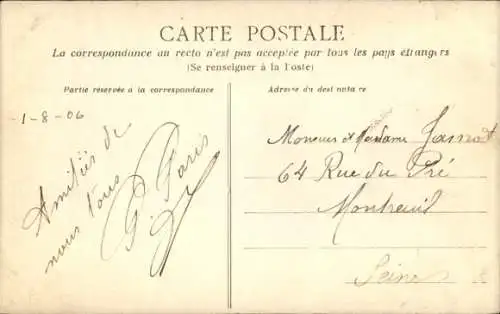 CARTE POSTALE
La correspondance au recto n'est pas acceptée par tous les pays étrangers
(Se renseigner à la Poste)
Partie réservée à la correspondance
Adresse du destinataire
1-8-06
Amitiés de
nous tous
P. Paris
Monsieur et Madame
64 Rue du Pré
Montreuil
Seine